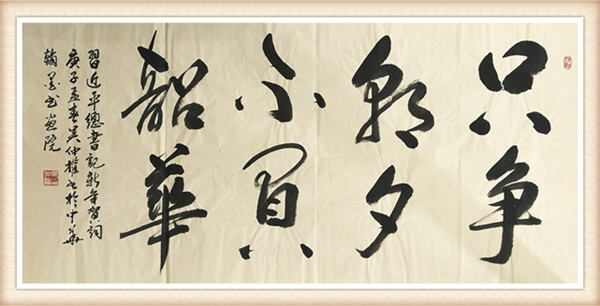 只争
朝夕
不負
韶華
習近平總書記新年賀詞
庚子孟春吴仲權书於中華
翰墨书畫院